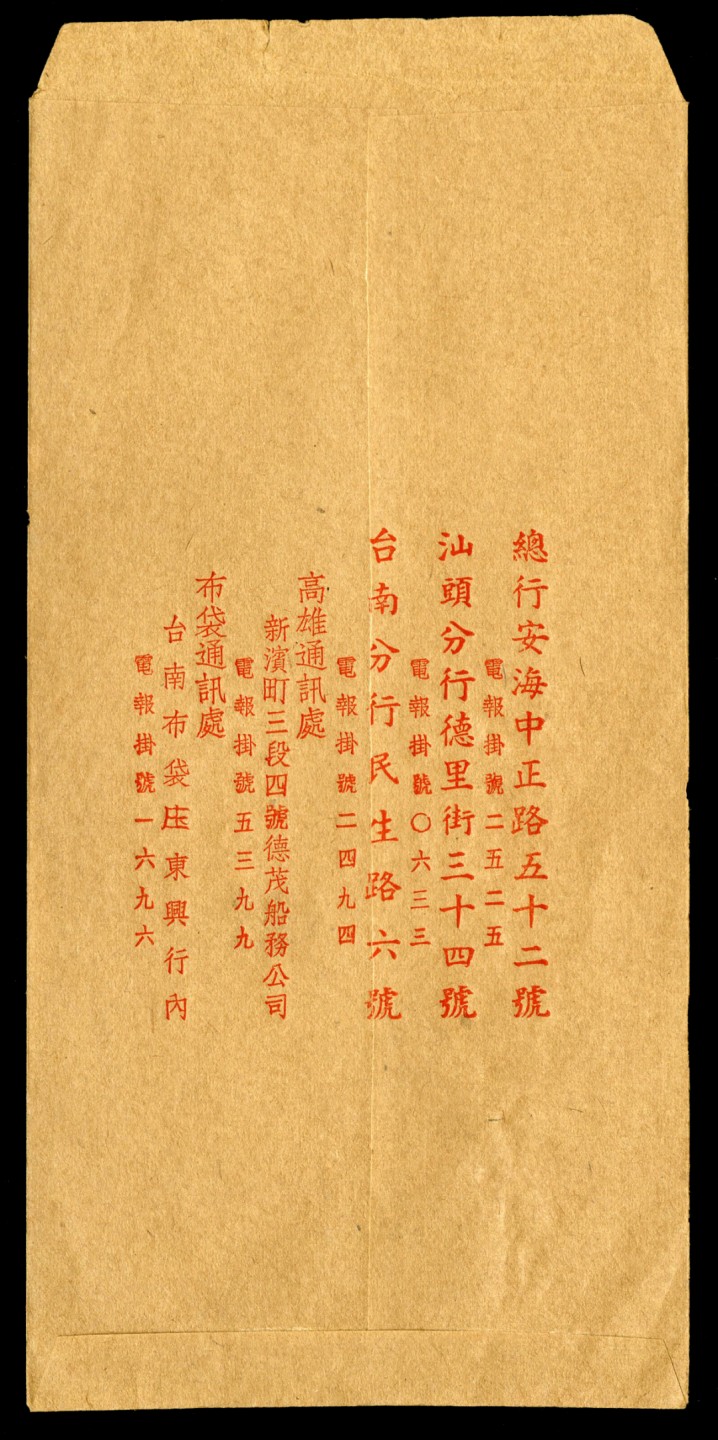 總行安海中正路五十二號
電報掛號二五二五
汕頭分行德里街三十四號
電報掛號〇六三三
台南分行民生路六號
電報掛號二四九四
高雄通訊處
新濱町三段四號德茂船務公司
電報掛號五三九九
布袋通訊處
台南布袋庄東興行內
電報掛號一六九六